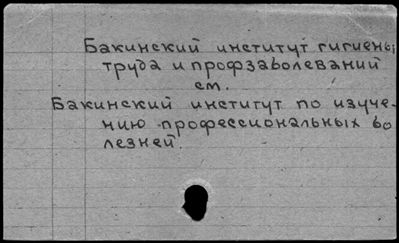 Бакинский институт гигиены
труда и профзаболеваний
см.
Бакинский институт по изуче-
нию профессиональных бо
лезней.